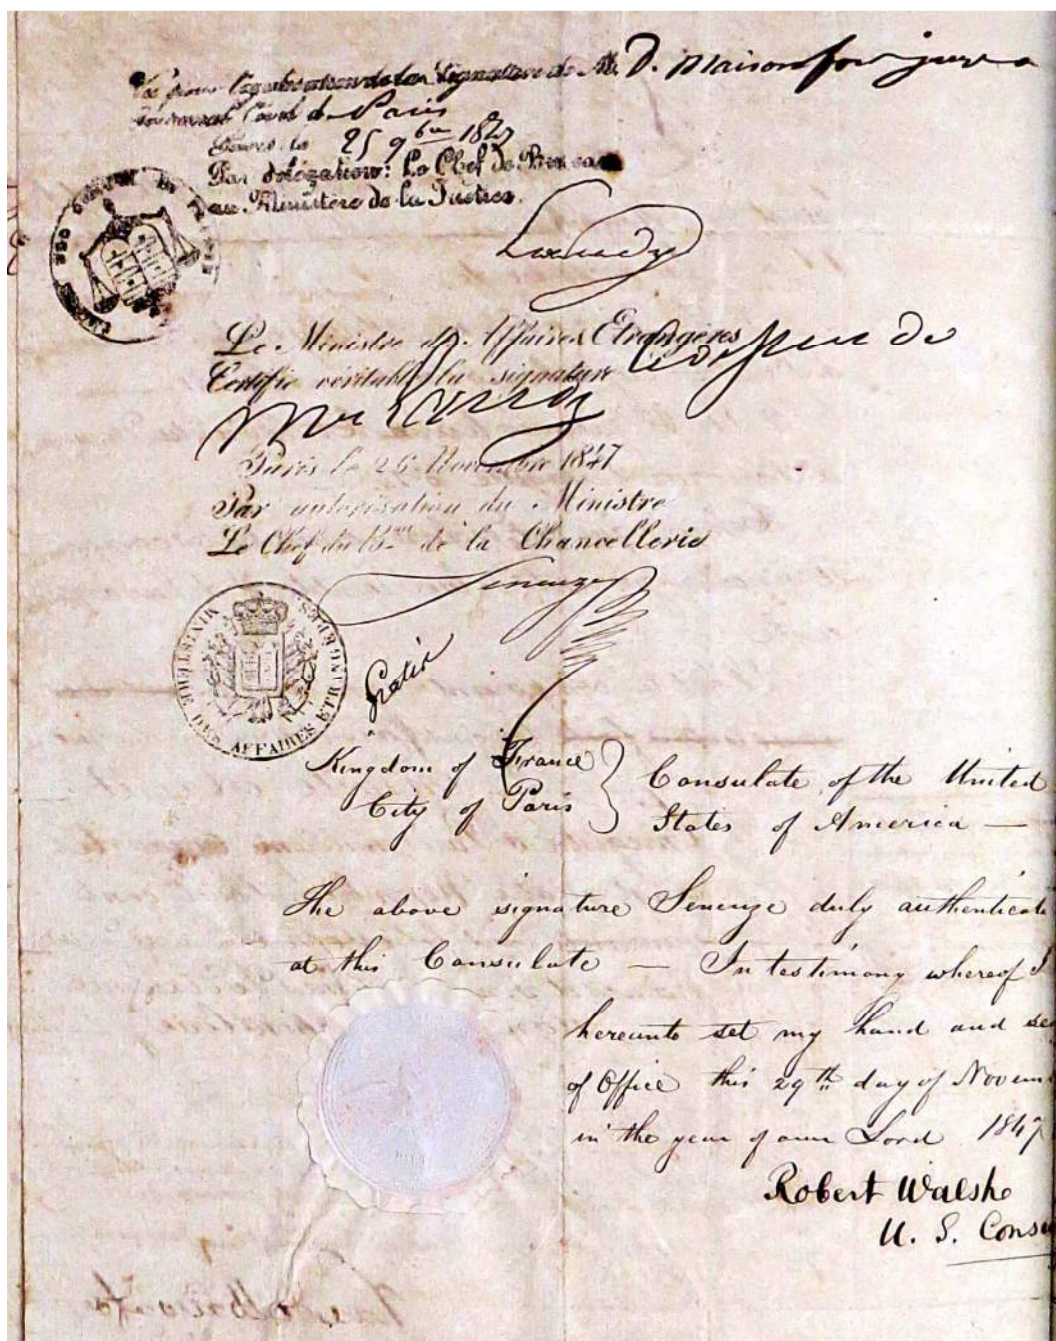 Vu pour légalisation de la Signature de M. D. Maison
de Paris
Paris le 25 9bre 1847
Par délégation: Le Chef de Bureau
au Ministère de la Justice.
Le Ministre des Affaires Etrangères
Certifie véritable la signature
de
Mr
Paris le 26 Novembre 1847
Par autorisation du Ministre
Le Chef du Bau de la Chancellerie
Senenze
MINISTÈRE DES AFFAIRES ETRANGÈRES.
Gratis
Kingdom of France
City of Paris
Consulate of the United
States of America —
The above signature Senenze duly authenticate
at this Consulate — In testimony whereof I
hereunto set my hand and se
of Office this 29th day of Novem
in the year of our Lord 1847
Robert Walsh
U. S. Consu